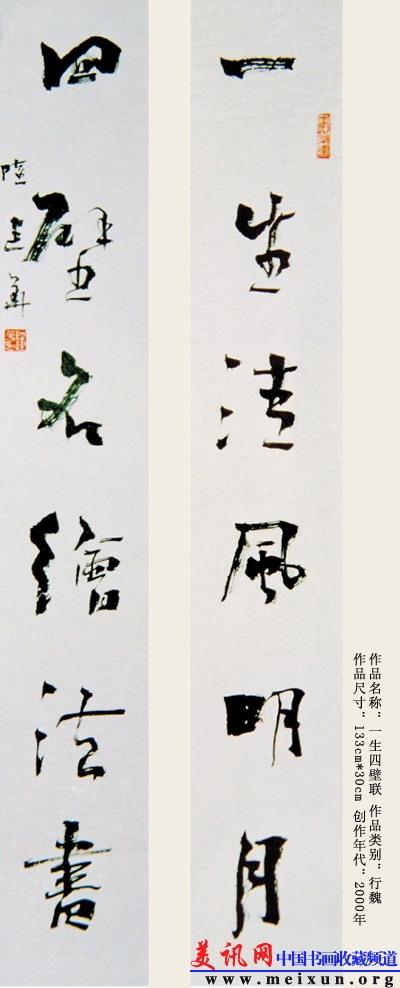 一生清風明月
四壁名繪法書
作品名称：一生四壁联 作品类别：行魏
作品尺寸：133cm*30cm 创作年代：2000年
美讯网 中国书画收藏频道
www.meixun.org